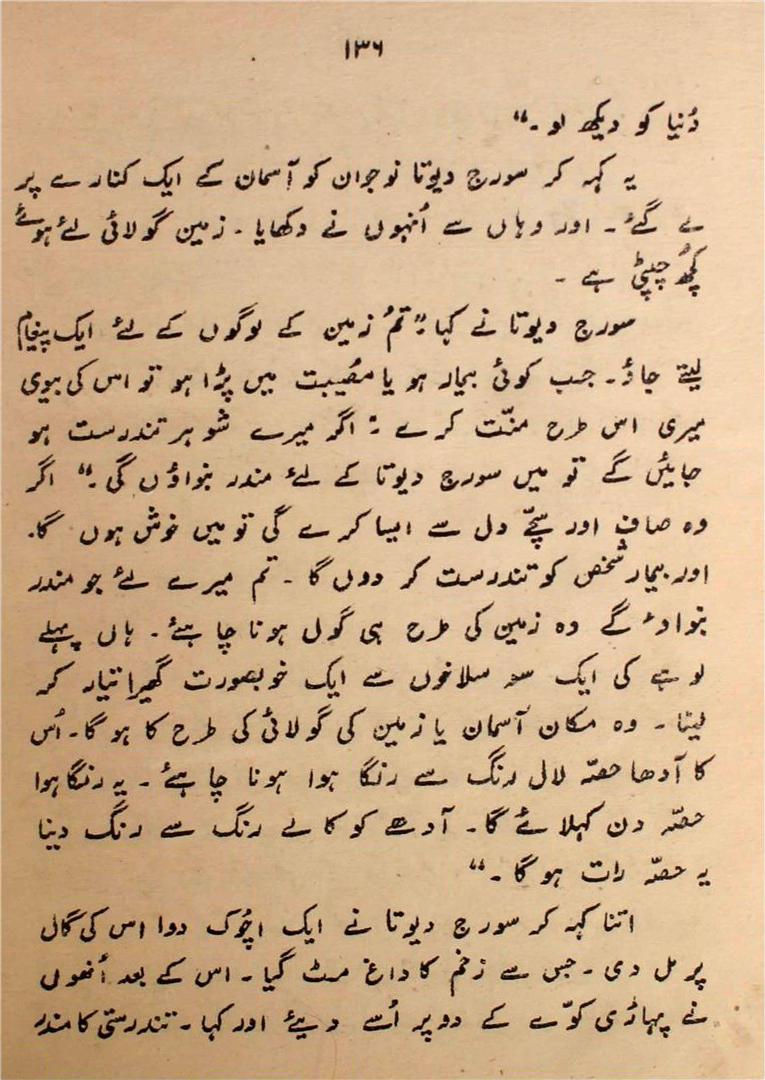 ۱۳۶
دُنیا کو دیکھ لو۔“
یہ کہہ کر سورج دیوتا نوجوان کو آسمان کے ایک کنارے پر
لے گئے۔ اور وہاں سے اُنہوں نے دکھایا۔ زمین گولائی لئے ہوئے
کچُھ چپٹی ہے۔
سورج دیوتا نے کہا ”تمُ زمین کے لوگوں کے لئے ایک پیغام
لیتے جاؤ۔ جب کوئی بیمار ہو یا مصُیبت میں پڑا ہو تو اس کی بیوی
میری اس طرح منّت کرے : اگر میرے شوہر تندرست ہو
جایئں گے تو میں سورج دیوتا کے لئے مندر بنواؤں گی۔“ اگر
وہ صاف اور سچّے دل سے ایسا کرے گی تو میں خوش ہوں گا۔
اور بیمار شخص کو تندرست کر دوں گا۔ تم میرے لئے جو مندر
بنواوٴ گے وہ زمین کی طرح ہی گول ہونا چاہئے۔ ہاں پہلے
لوہے کی ایک سو سلاخوں سے ایک خوبصورت گھیرا تیار کر
لینا۔ وہ مکان آسمان یا زمین کی گولائی کی طرح کا ہو گا۔ اُس
کا آدھا حصّہ لال رنگ سے رنگا ہوا ہونا چاہئے۔ یہ رنگا ہوا
حصّہ دن کہلائے گا۔ آدھے کو کالے رنگ سے رنگ دینا
یہ حصّہ رات ہو گا۔“
اتنا کہہ کر سورج دیوتا نے ایک اچُوک دوا اس کی گال
پر مل دی۔ جس سے زخم کا داغ مٹ گیا۔ اس کے بعد اُنھوں
نے پہاڑی کوّے کے دو پر اُسے دیئے اور کہا۔ تندرستی کا مندر